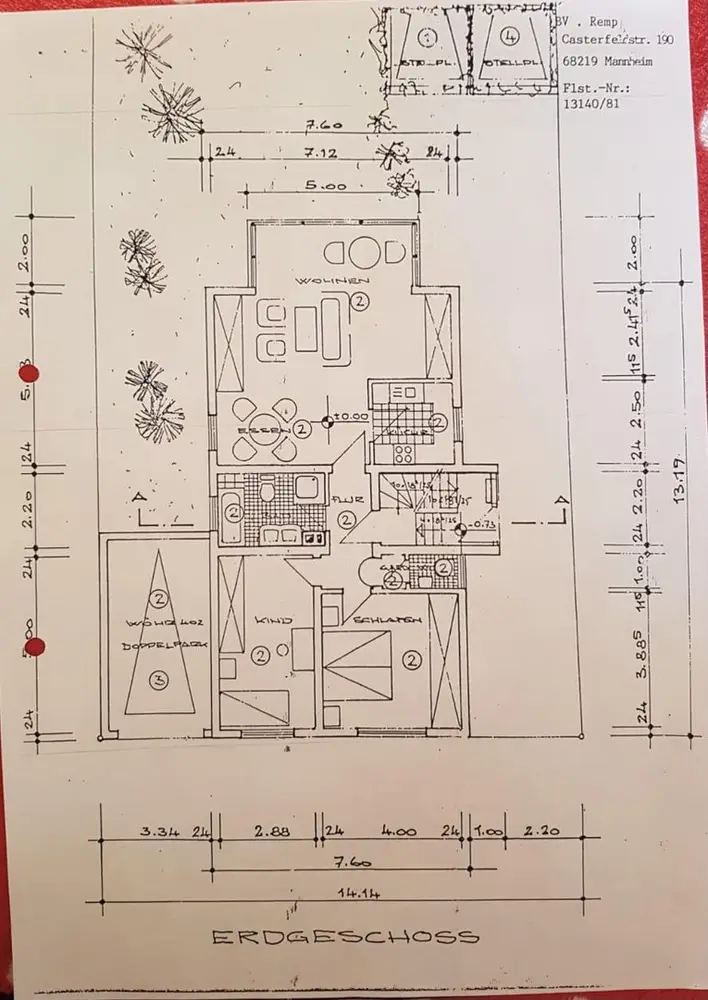 BV . Remp
Casterfeldstr. 190
68219 Mannheim
Flst.-Nr.:
13140/81
4
STELLPL.
7.60
24 7.12 24
5.00
WOHNEN
2
ESSEN 2
±0.00
KÜCHE
2
2
FLUR
2
10x18/25
-0.73
A
A
2
2
2
WÖHR 402
DOPPELPARK
3
KIND
2
SCHLAFEN
2
2.00
24
24
2.20
24
24
2.00
24
2.41⁵
11⁵
2.50
24
2.20
24
1.00
11⁵
3.88⁵
24
13.19
3.34 24 2.88 24 4.00 24 1.00 2.20
7.60
14.14
ERDGESCHOSS